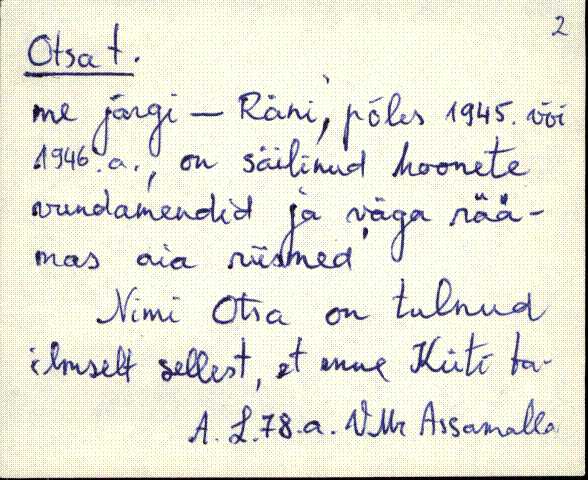 2
Otsa t.
me järgi — Räni, põles 1945. või
1946. a., on säilinud hoonete
vundamendid ja väga rää-
mas aia riismed
Nimi Otsa on tulnud
ilmselt sellest, et enne Küti ta-
A. L. 78. a. VMr Assamalla